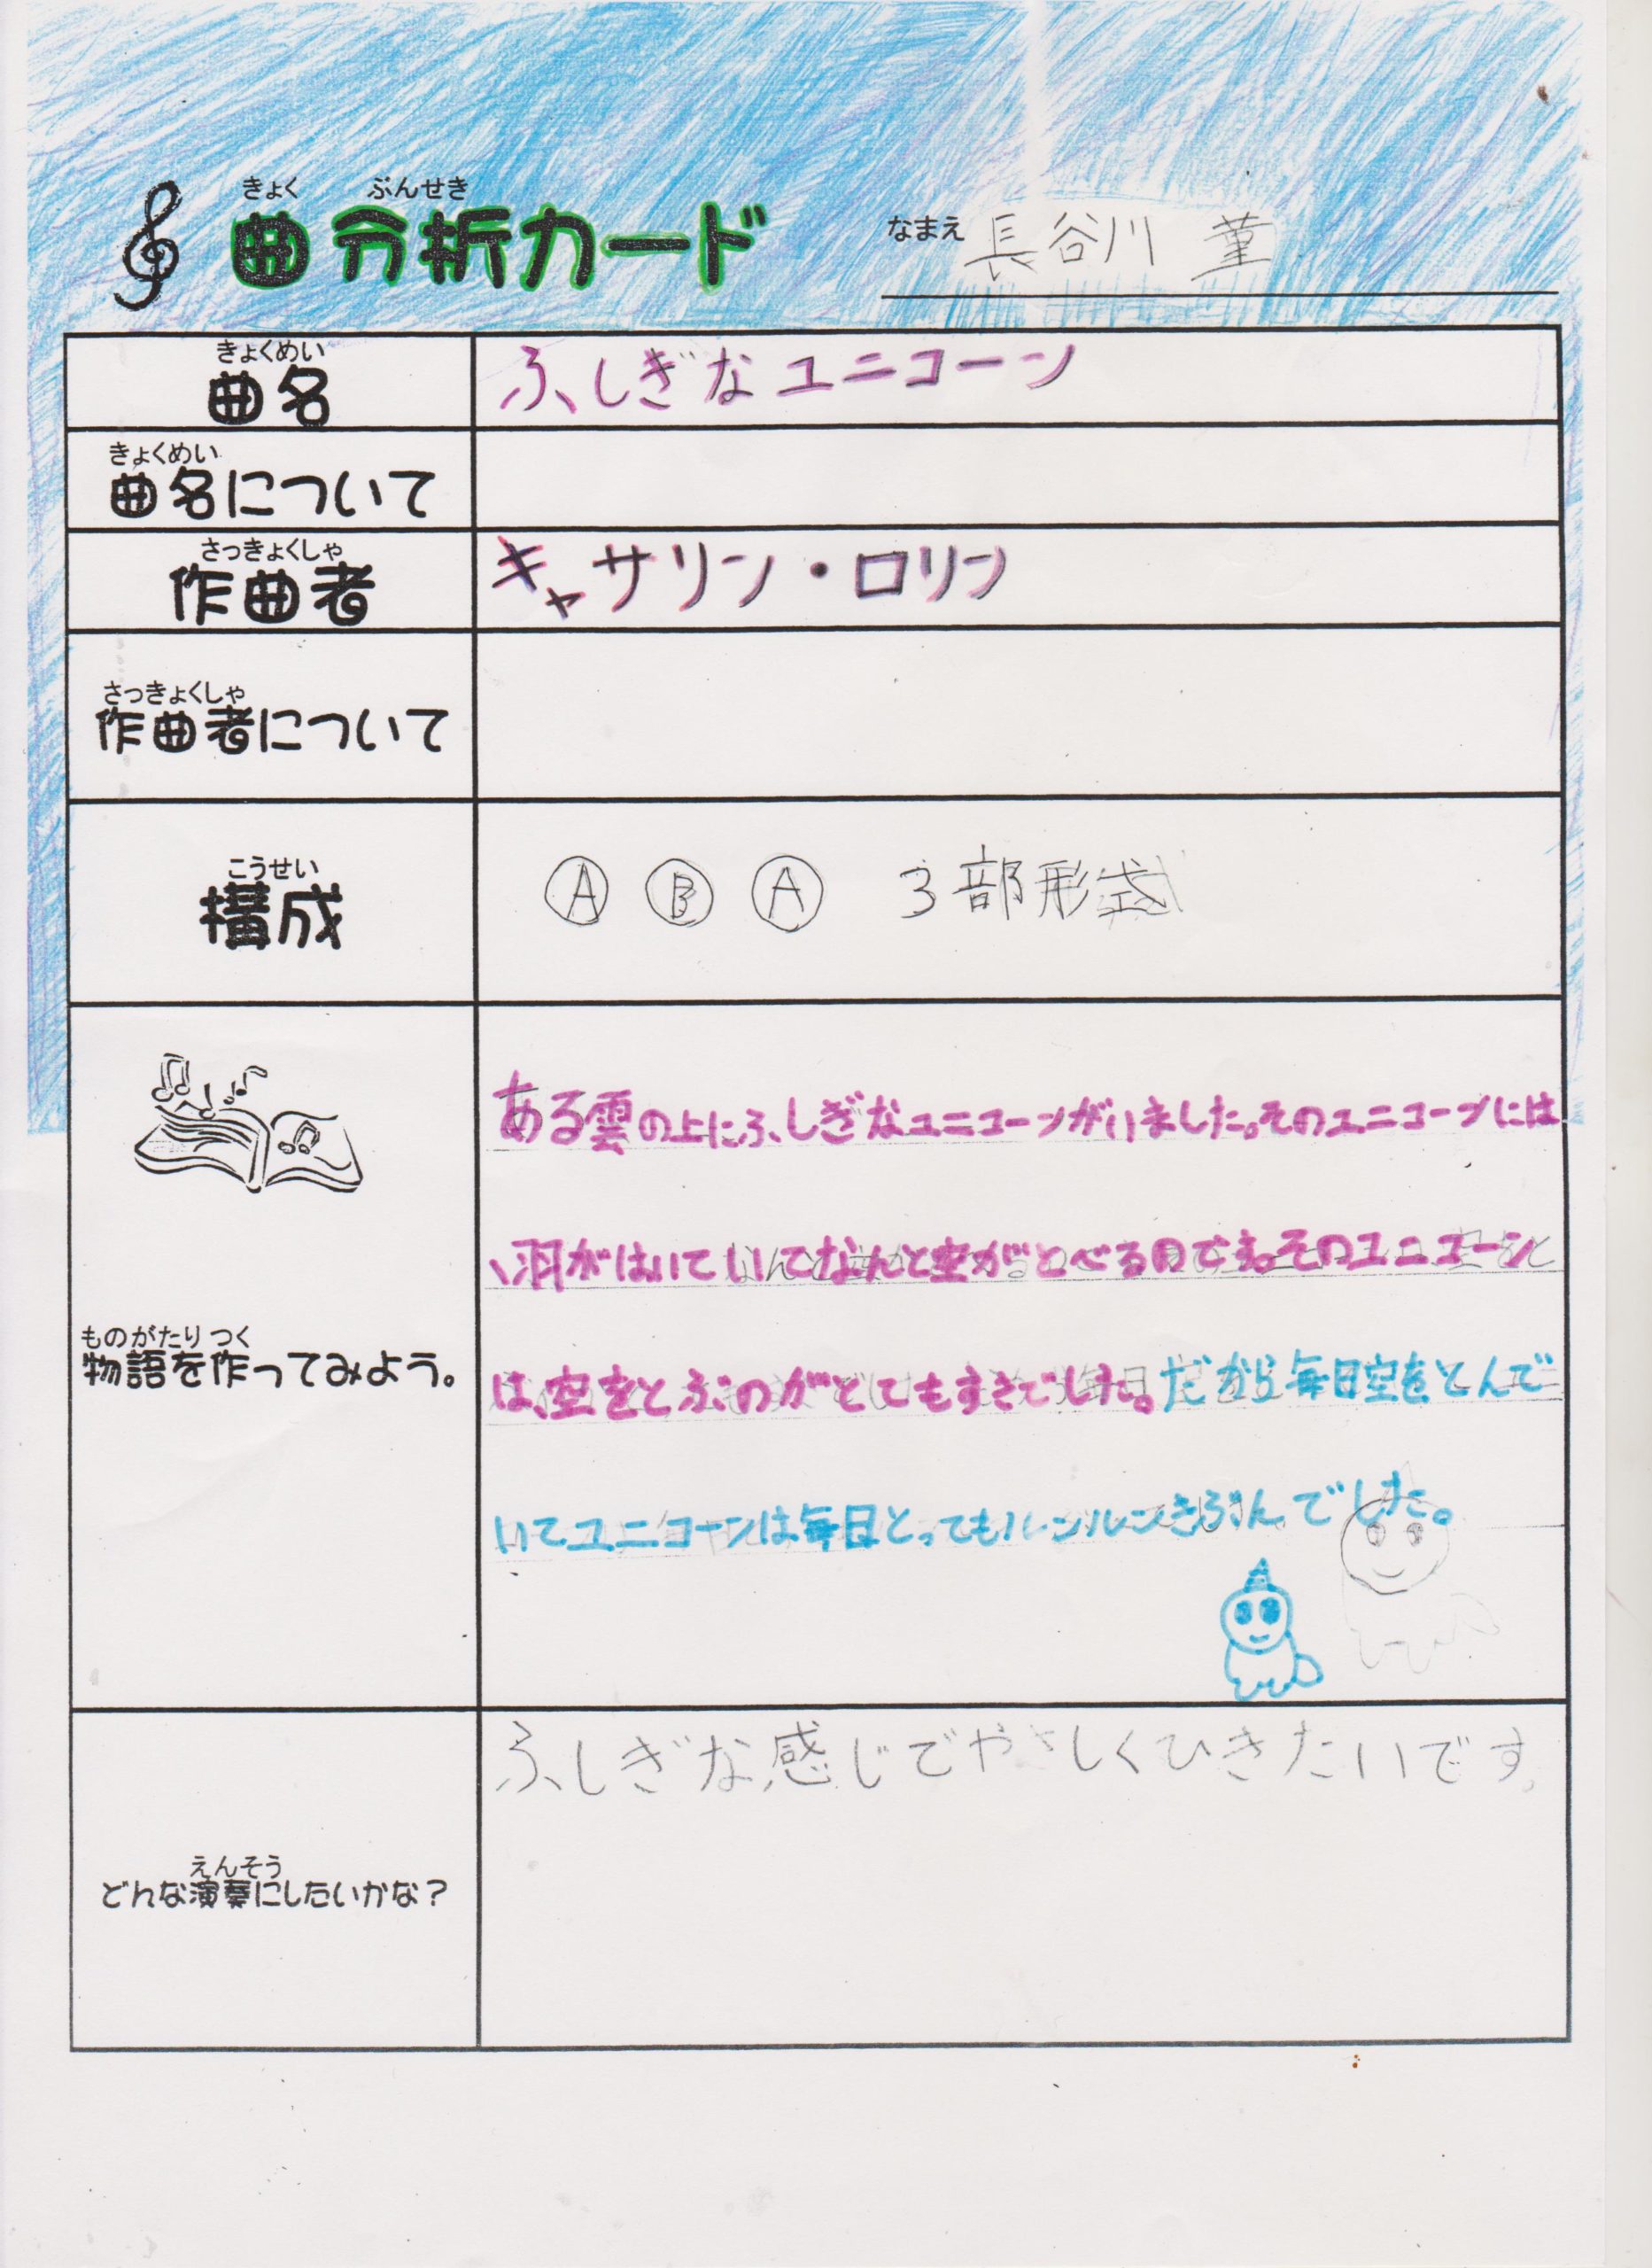 きょく ぶんせき
曲分析カード
なまえ 長谷川 菫
きょくめい
曲名
ふしぎなユニコーン
きょくめい
曲名について
さっきょくしゃ
作曲者
キャサリン・ロリン
さっきょくしゃ
作曲者について
こうせい
構成
Ⓐ Ⓑ Ⓐ 3部形式
ものがたり つく
物語を作ってみよう。
ある雲の上にふしぎなユニコーンがいました。そのユニコーンには
、羽がはいていてなんと空がとべるのです。そのユニコーン
は、空をとぶのがとてもすきでした。だから毎日空をとんで
いてユニコーンは毎日とってもルンルンきぶんでした。
えんそう
どんな演奏にしたいかな？
ふしぎな感じでやさしくひきたいです。